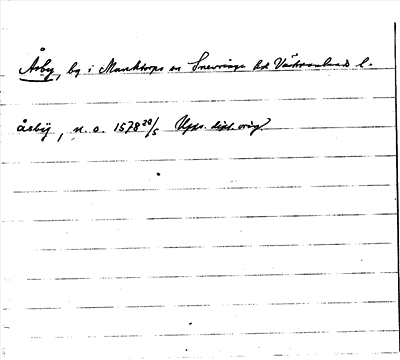 Åsby, by i Munktorps sn Snevringe hd Västmanlands l.
åsbÿ, n. o. 1578 20/5 Upps. dipl. orig.